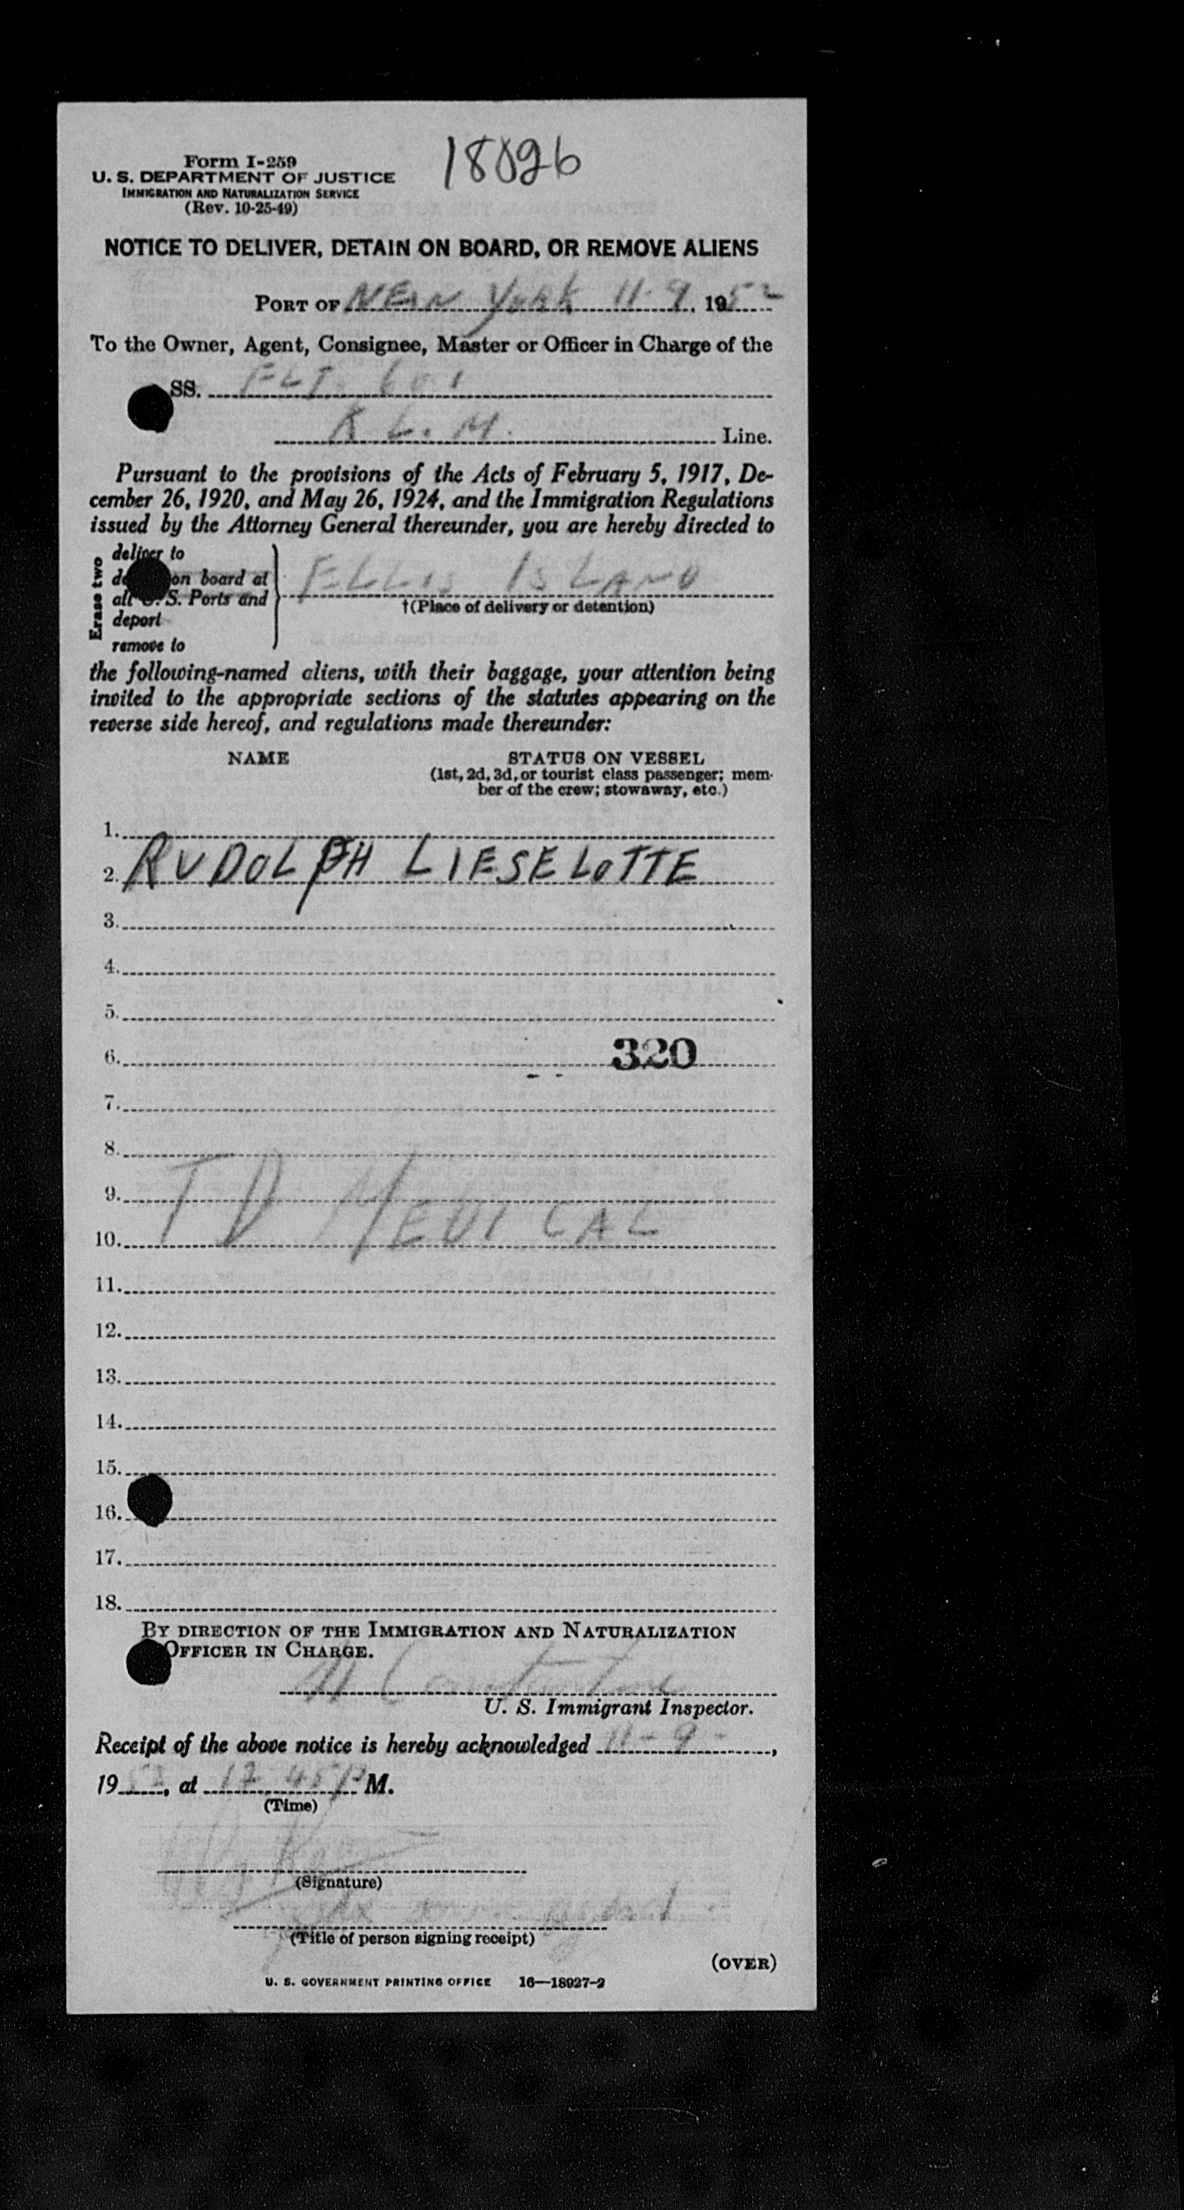 Form I-259
18026
U. S. DEPARTMENT OF JUSTICE
IMMIGRATION AND NATURALIZATION SERVICE
(Rev. 10-25-49)
NOTICE TO DELIVER, DETAIN ON BOARD, OR REMOVE ALIENS
PORT OF NEW YORK 11-9, 1952
To the Owner, Agent, Consignee, Master or Officer in Charge of the
SS. FLT. 601
K L. M. Line.
Pursuant to the provisions of the Acts of February 5, 1917, De-
cember 26, 1920, and May 26, 1924, and the Immigration Regulations
issued by the Attorney General thereunder, you are hereby directed to
Erase two
deliver to
on board at
all U. S. Ports and
deport
remove to
ELLIS ISLAND
†(Place of delivery or detention)
the following-named aliens, with their baggage, your attention being
invited to the appropriate sections of the statutes appearing on the
reverse side hereof, and regulations made thereunder:
NAME STATUS ON VESSEL
(1st, 2d, 3d, or tourist class passenger; mem-
ber of the crew; stowaway, etc.)
1.
2. RUDOLPH LIESELOTTE
3.
4.
5.
6. 320
7.
8.
9.
10. TD MEDICAL
11.
12.
13.
14.
15.
16.
17.
18.
BY DIRECTION OF THE IMMIGRATION AND NATURALIZATION
OFFICER IN CHARGE.
U. S. Immigrant Inspector.
Receipt of the above notice is hereby acknowledged 11-9-,
1952, at 12.45 P M.
(Time)
(Signature)
(Title of person signing receipt)
(OVER)
U. S. GOVERNMENT PRINTING OFFICE 16—18927-2